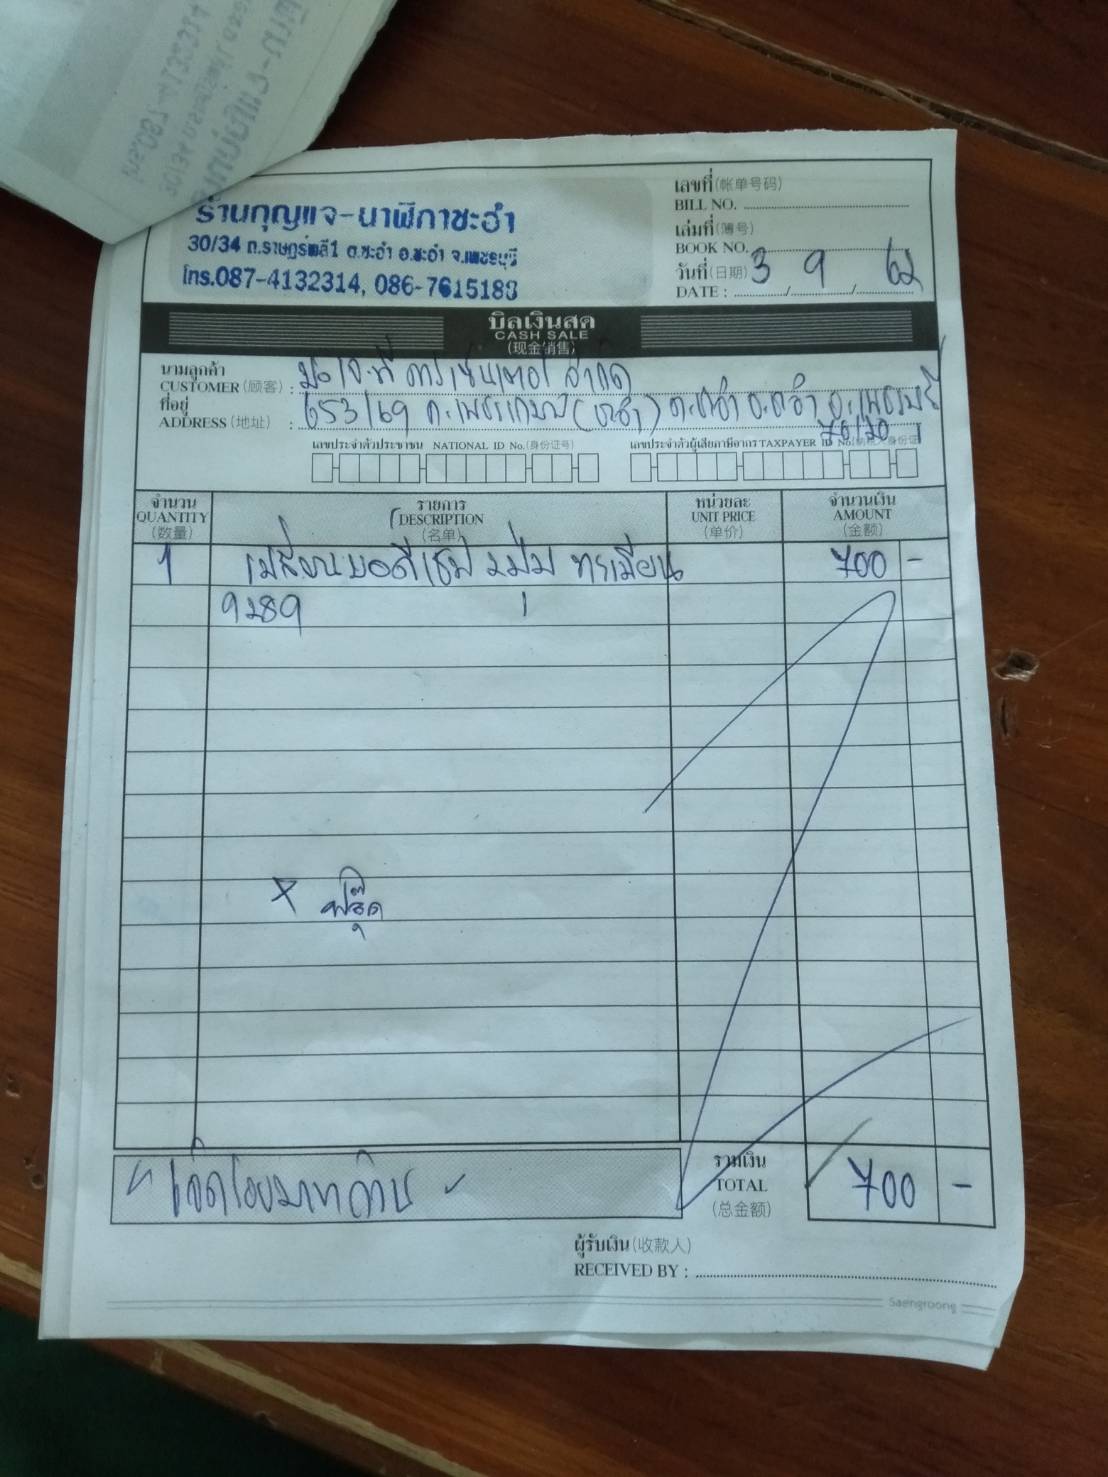 ร้านกุญแจ-นาฬิกาชะอำ
30/34 ถ.ราษฎร์พลี1 ต.ชะอำ อ.ชะอำ จ.เพชรบุรี
โทร.087-4132314, 086-7615188
เลขที่(帐单号码)
BILL NO.
เล่มที่(簿号)
BOOK NO.
วันที่(日期) 3 9 62
DATE : / /
บิลเงินสด
CASH SALE
(现金销售)
นามลูกค้า
CUSTOMER(顾客) : จำกัด
ที่อยู่
ADDRESS(地址) : 653/69 ถ.เพชรเกษม
76120
เลขประจำตัวประชาชน NATIONAL ID No.(身份证号)
เลขประจำตัวผู้เสียภาษีอากร TAXPAYER ID No.
จำนวน รายการ หน่วยละ จำนวนเงิน
QUANTITY DESCRIPTION UNIT PRICE AMOUNT
(数量) (名单) (单价) (金额)
1 เปลี่ยนบอดี้ ทะเบียน 700 -
9289
รวมเงิน
TOTAL 700 -
(总金额)
ผู้รับเงิน(收款人)
RECEIVED BY :
Saengroong